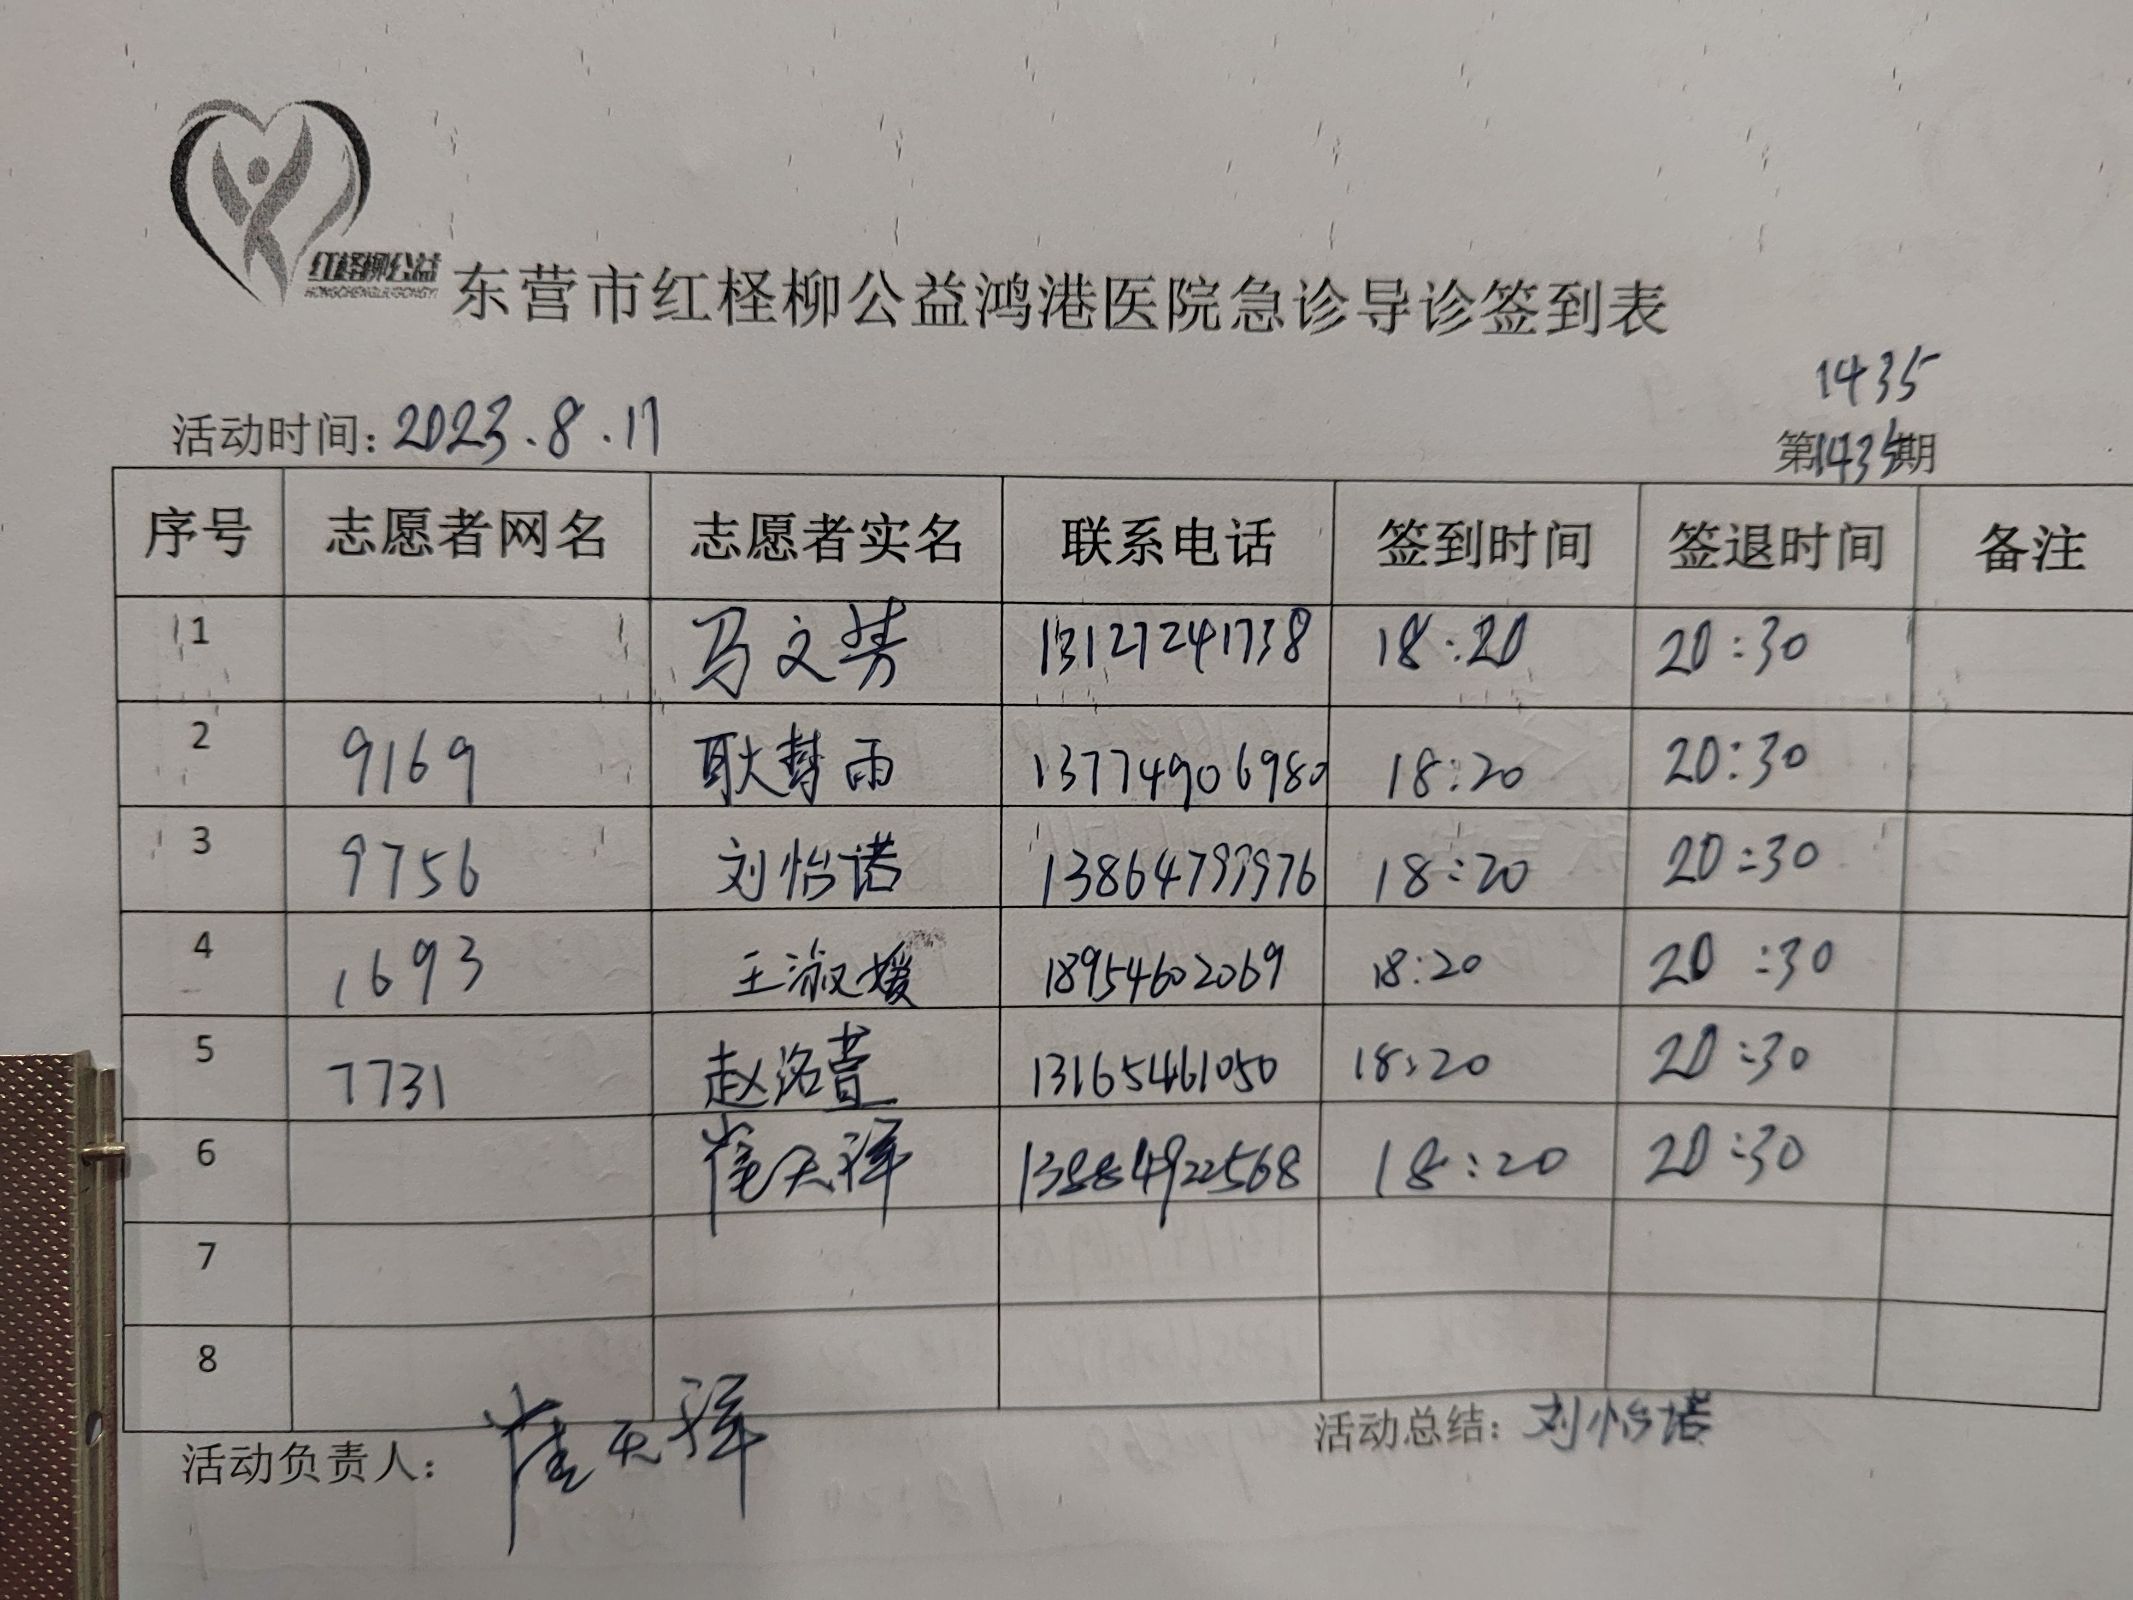 红柽柳公益
HONGCHENGLIUGONGYI
东营市红柽柳公益鸿港医院急诊导诊签到表
1435
活动时间：2023.8.17 第1435期
序号 志愿者网名 志愿者实名 联系电话 签到时间 签退时间 备注
1 马文 13127241738 18:20 20:30
2 9169 耿梦雨 13774906980 18:20 20:30
3 9756 刘怡诺 13864799976 18:20 20:30
4 1693 王淑媛 18954602069 18:20 20:30
5 7731 赵洺萱 13165461050 18:20 20:30
6 崔天祥 13884922568 18:20 20:30
7
8
活动负责人：崔天祥 活动总结：刘怡诺